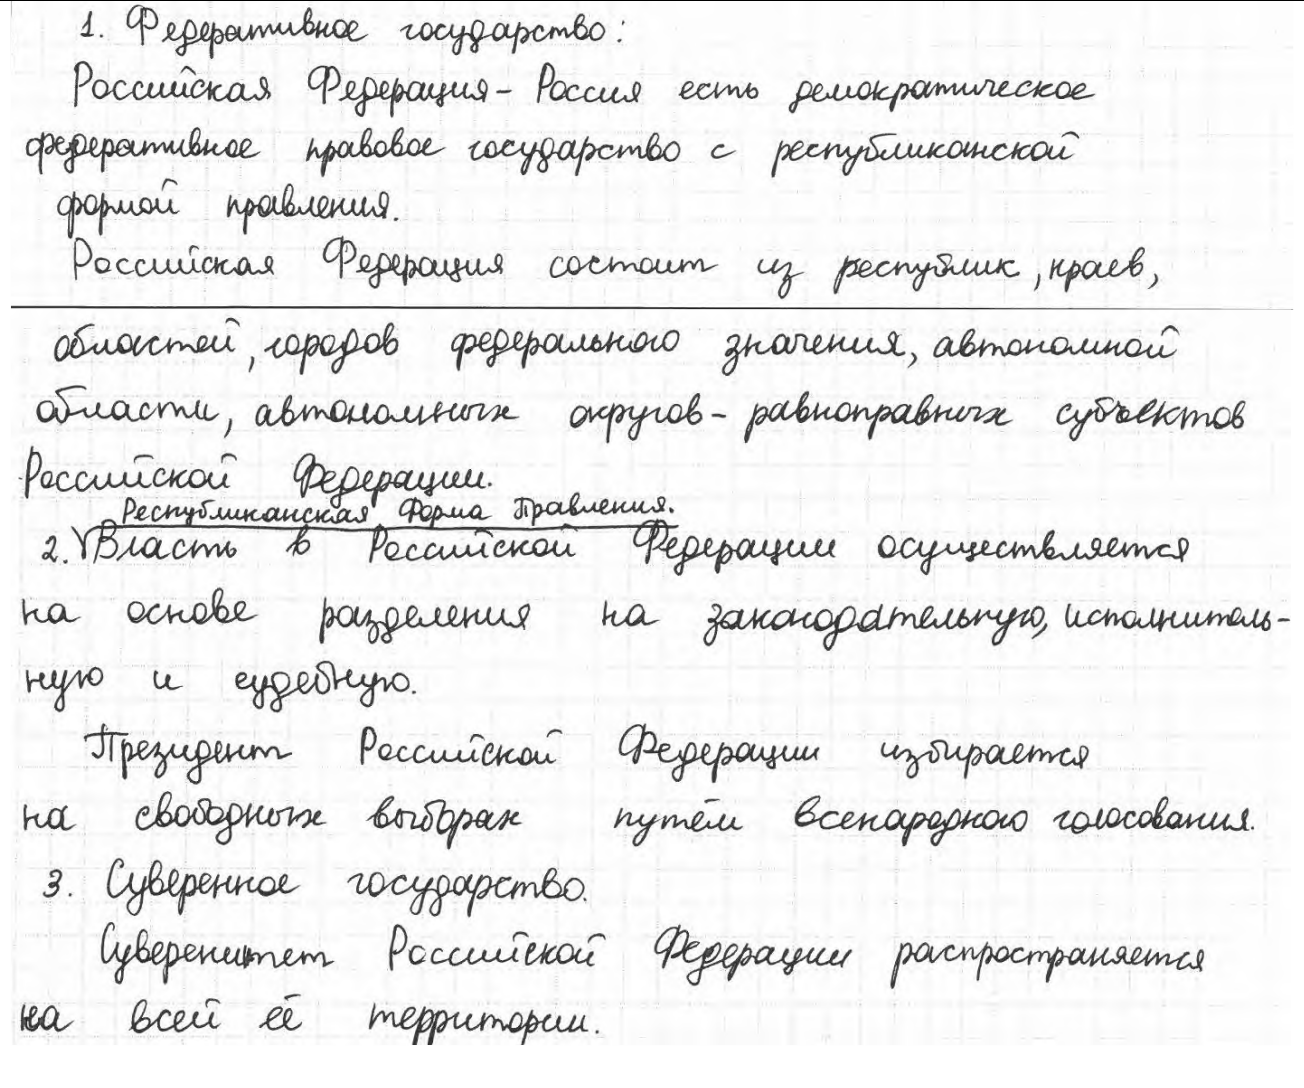 1. Федеративное государство:
Российская Федерация - Россия есть демократическое
федеративное правовое государство с республиканской
формой правления.
Российская Федерация состоит из республик, краев,
областей, городов федерального значения, автономной
области, автономных округов - равноправных субъектов
Российской Федерации.
Республиканская Форма Правления.
2. Власть в Российской Федерации осуществляется
на основе разделения на законодательную, исполнитель-
ную и судебную.
Президент Российской Федерации избирается
на свободных выборах путём всенародного голосования.
3. Суверенное государство.
Суверенитет Российской Федерации распространяется
на всей её территории.